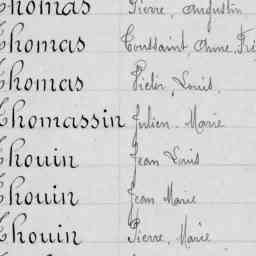 Thomas Pierre, Augustin
Thomas Toussaint, Anne, Fré
Thomas Victor, Louis.
Thomassin Julien - Marie
Thouin Jean Louis
Thouin Jean Marie
Thouin Pierre, Marie